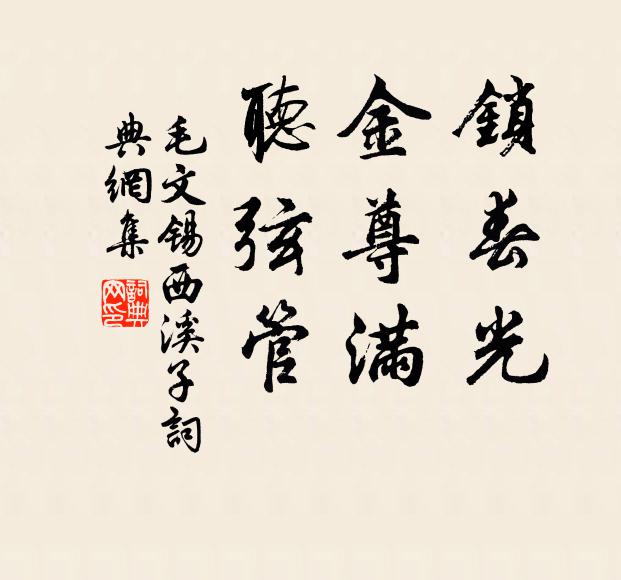 鎖春光
金尊滿
聽弦管
毛文锡西溪子詞
典網集
詞典
网印